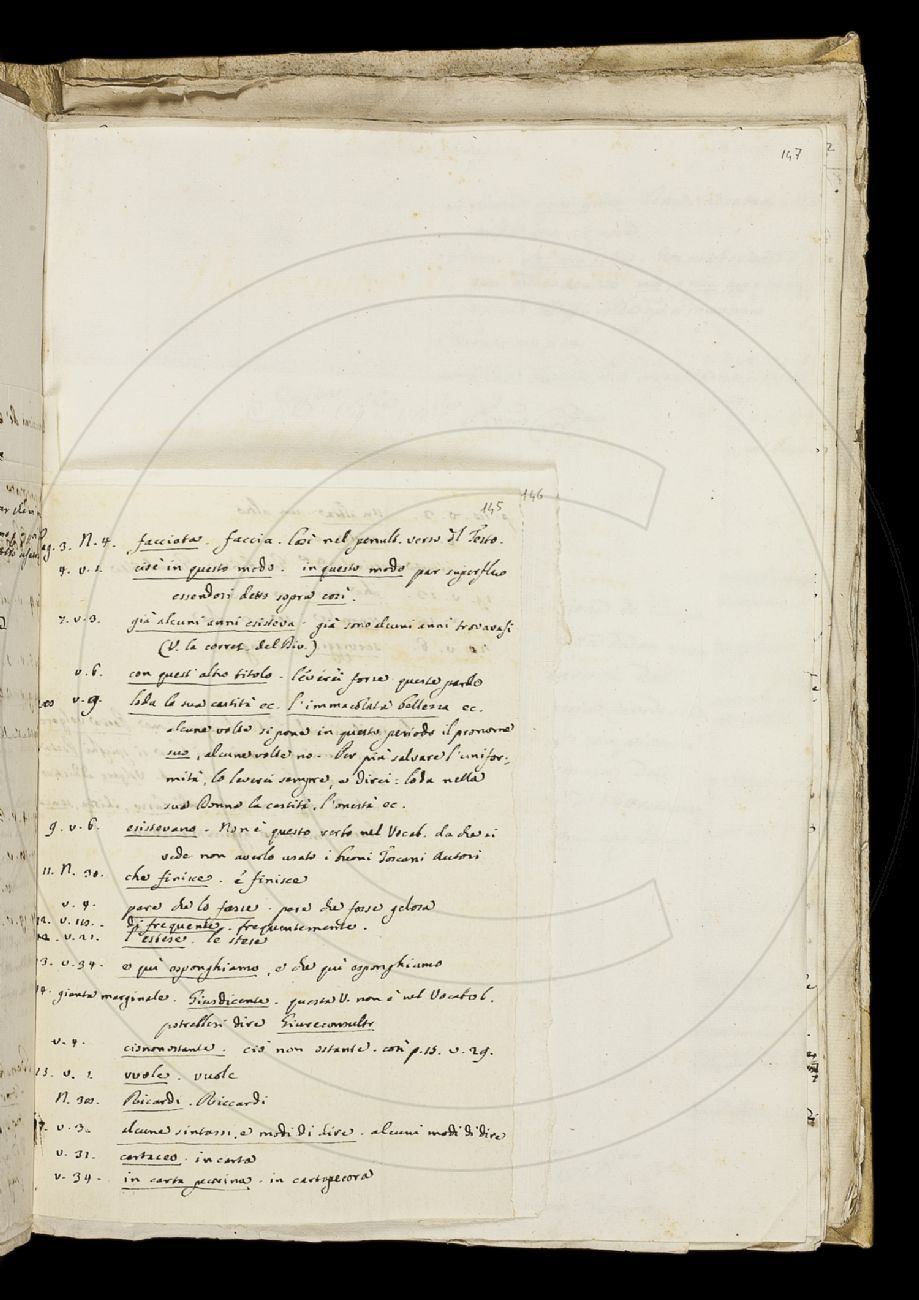 147
146
145
ag. 3. N. 4. facciata. faccia. Così nel penult. verso d'l Testo.
4. v. 1. cioè in questo modo. in questo modo par superfluo
essendosi detto sopra così.
7. v. 3. già alcuni anni esisteva. già sono alcuni anni trovavasi
(V. la corret. del Riv.)
v. 6. con quest'altro titolo. leverei forse queste parole
v. 9. loda la sua castità ec. l'immacolata bellezza ec.
alcune volte si pone in questo periodo il pronome
suo, alcune volte no. Per più salvare l'unifor-
mità, lo leverei sempre, e direi: loda nella
sua Donna la castità, l'onestà ec.
9. v. 6. esistevano. Non è questo verbo nel Vocab. da che si
vede non averlo usato i buoni Toscani Autori
11. N. 30. che finisce. è finisce
v. 4. pare che lo fosse. pare che fosse gelosa
12. v. di frequente. frequentemente.
v. 21. l'estese. le stese
13. v. 34. e quì esponghiamo, e che quì esponghiamo
14. giunta marginale. Giusdicente. questa V. non è nel Vocabol.
potrebbesi dire Giureconsulto
v. 4.ciononostante. ciò non ostante. così p. 15. v. 29.
15. v. 1. vuole. vuole
N. 30. Ricardi. Riccardi
17. v. 3. alcune sintassi, e modi di dire. alcuni modi di dire
v. 31. cartaceo. in carta
v. 34. in carta pecorina. in cartapecora